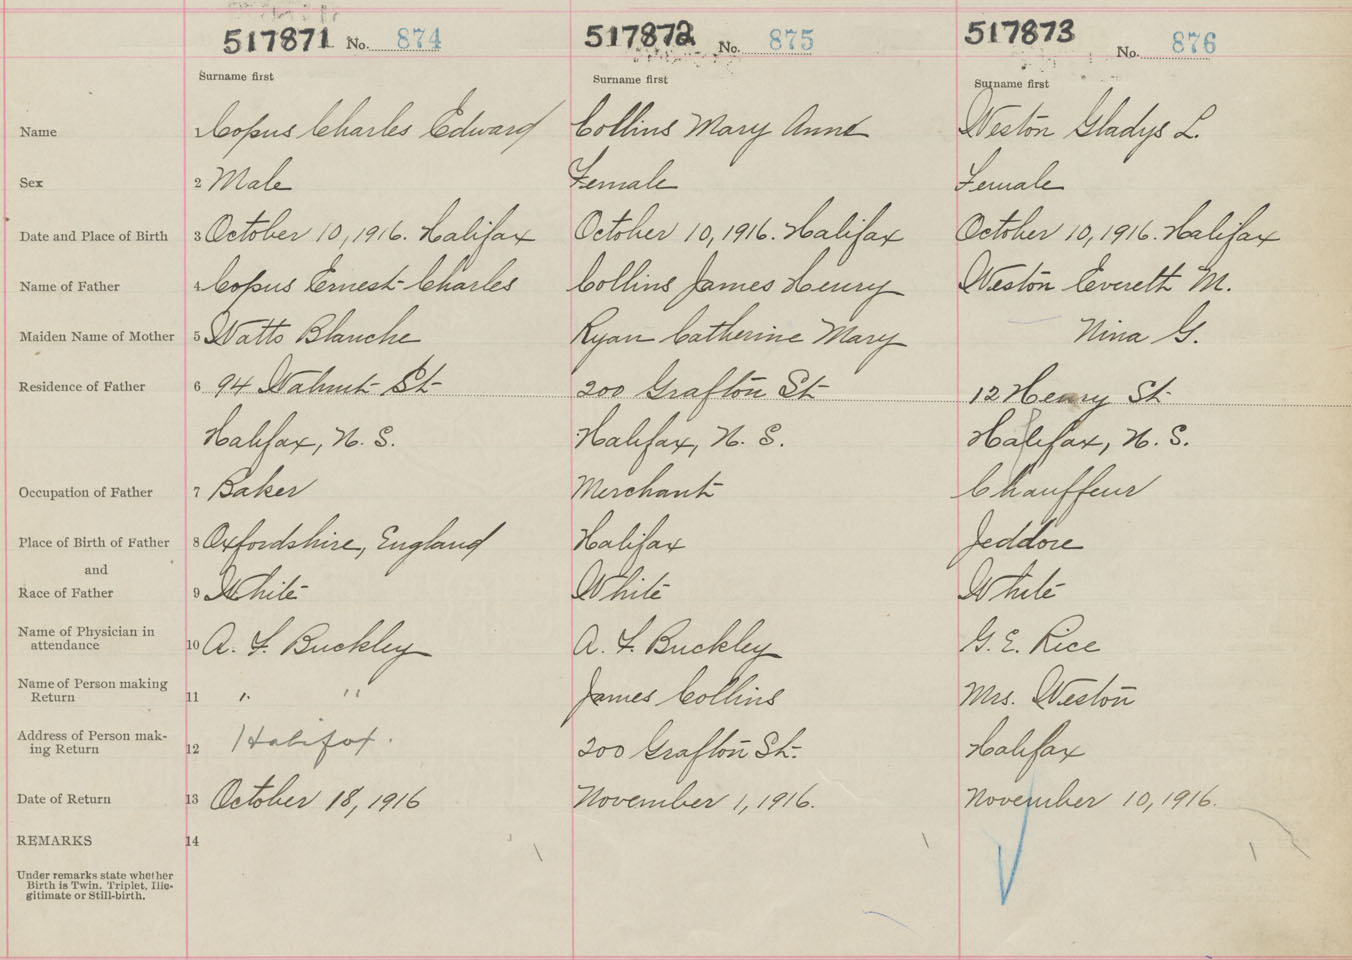 517871 No. 874 517872 No. 875 517873 No. 876
Surname first Surname first Surname first
Name 1 Copus Charles Edward Collins Mary Anne Weston Gladys L.
Sex 2 Male Female Female
Date and Place of Birth 3 October 10, 1916. Halifax October 10, 1916. Halifax October 10, 1916. Halifax
Name of Father 4 Copus Ernest Charles Collins James Henry Weston Everett M.
Maiden Name of Mother 5 Watts Blanche Ryan Catherine Mary Nina G.
Residence of Father 6 94 Walnut St 200 Grafton St 12 Henry St
Halifax, N. S. Halifax, N. S. Halifax, N. S.
Occupation of Father 7 Baker Merchant Chauffeur
Place of Birth of Father 8 Oxfordshire, England Halifax Jeddore
and
Race of Father 9 White White White
Name of Physician in
attendance 10 A. F. Buckley A. F. Buckley G. E. Rice
Name of Person making
Return 11 " " James Collins Mrs. Weston
Address of Person mak-
ing Return 12 Halifax. 200 Grafton St. Halifax
Date of Return 13 October 18, 1916 November 1, 1916. November 10, 1916.
REMARKS 14
Under remarks state whether
Birth is Twin, Triplet, Ille-
gitimate or Still-birth.